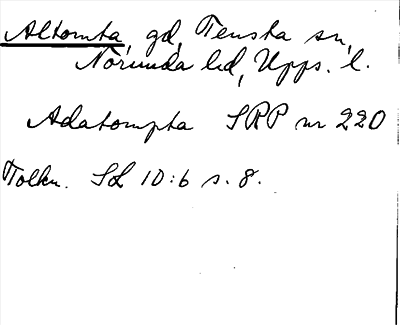 Altomta, gd, Tensta sn,
Norunda hd, Upps. l.
Adatompta SRP nr 220
Tolkn. SL 10:6 s. 8.